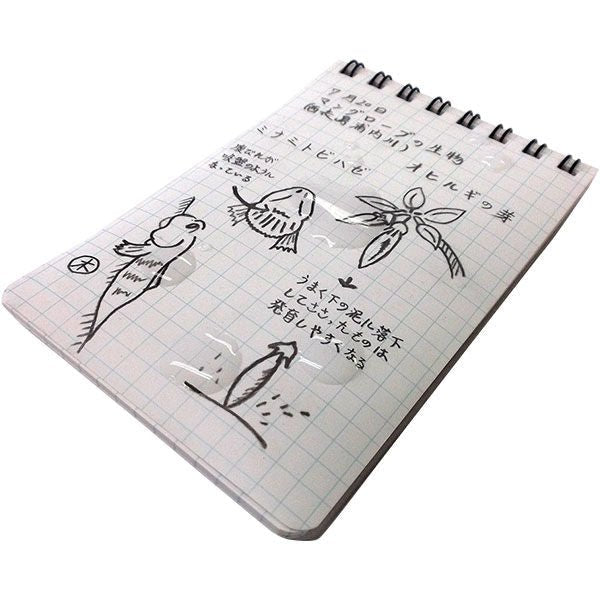 9月20日
マングローブの生物
(西表島浦内川)
ミナミトビハゼ
オヒルギの芽
腹びれが
吸盤のように
なっている
木
うまく下の泥に落下
してささったものは
発育しやすくなる